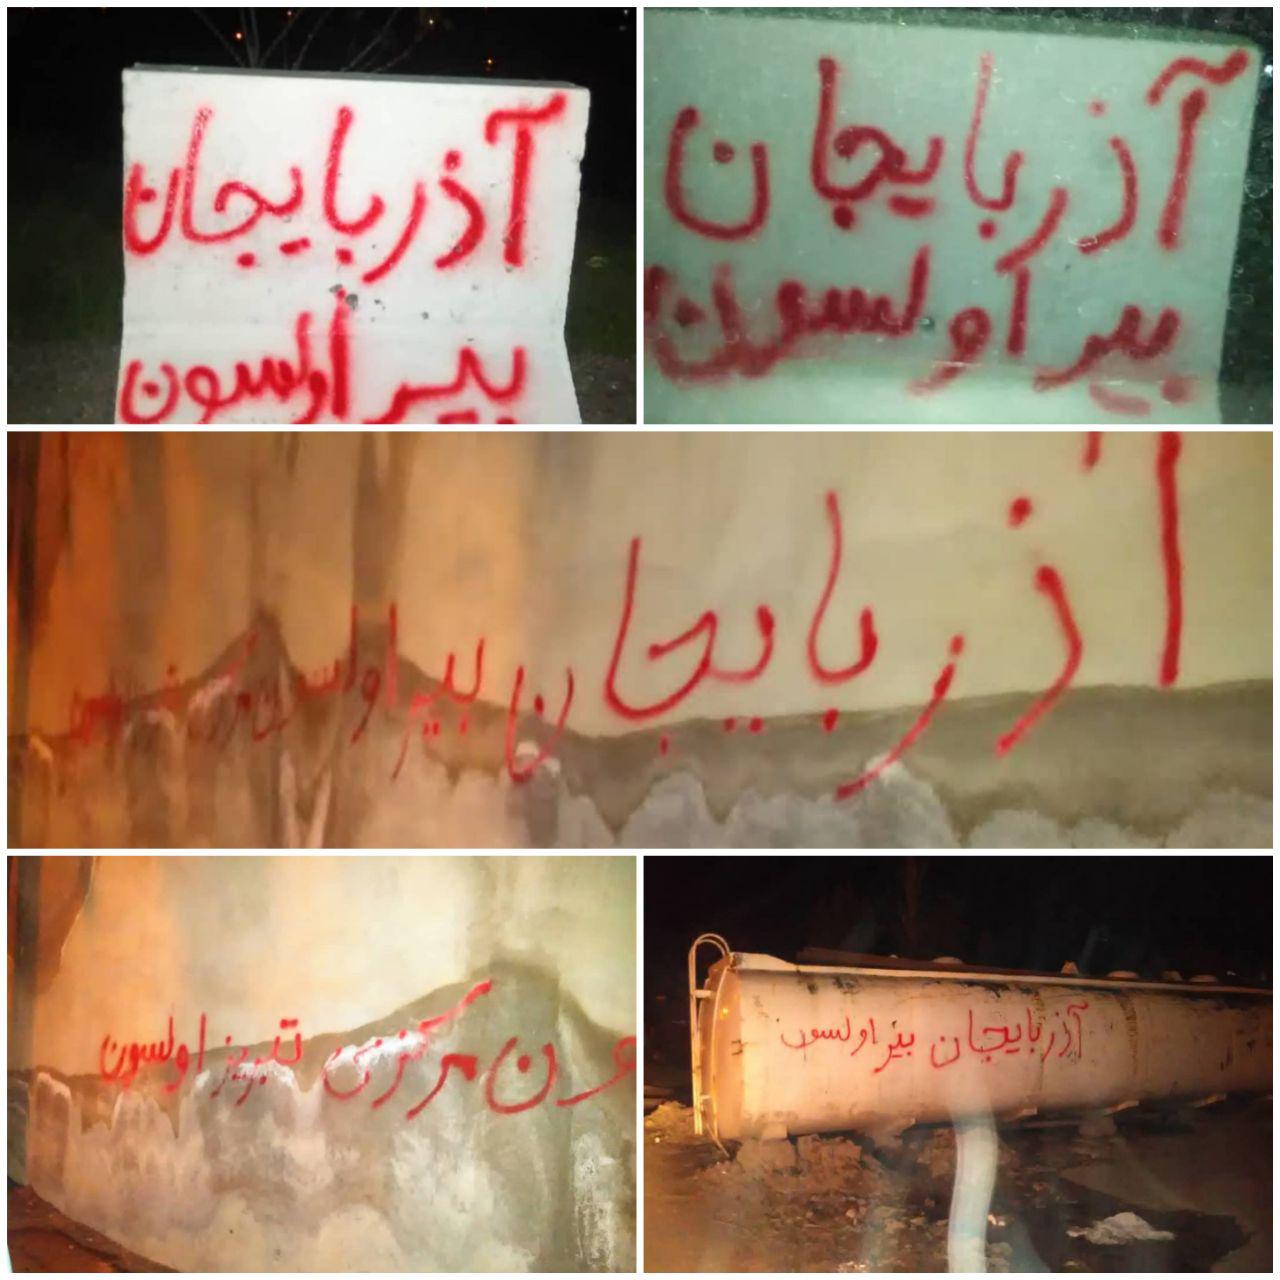 آذربایجان
بیر اولسون
آذربایجان
بیر اولسون
آذربایجان بیر اولسون مرکزی
ون مرکزی تبریز اولسون
آذربایجان بیر اولسون